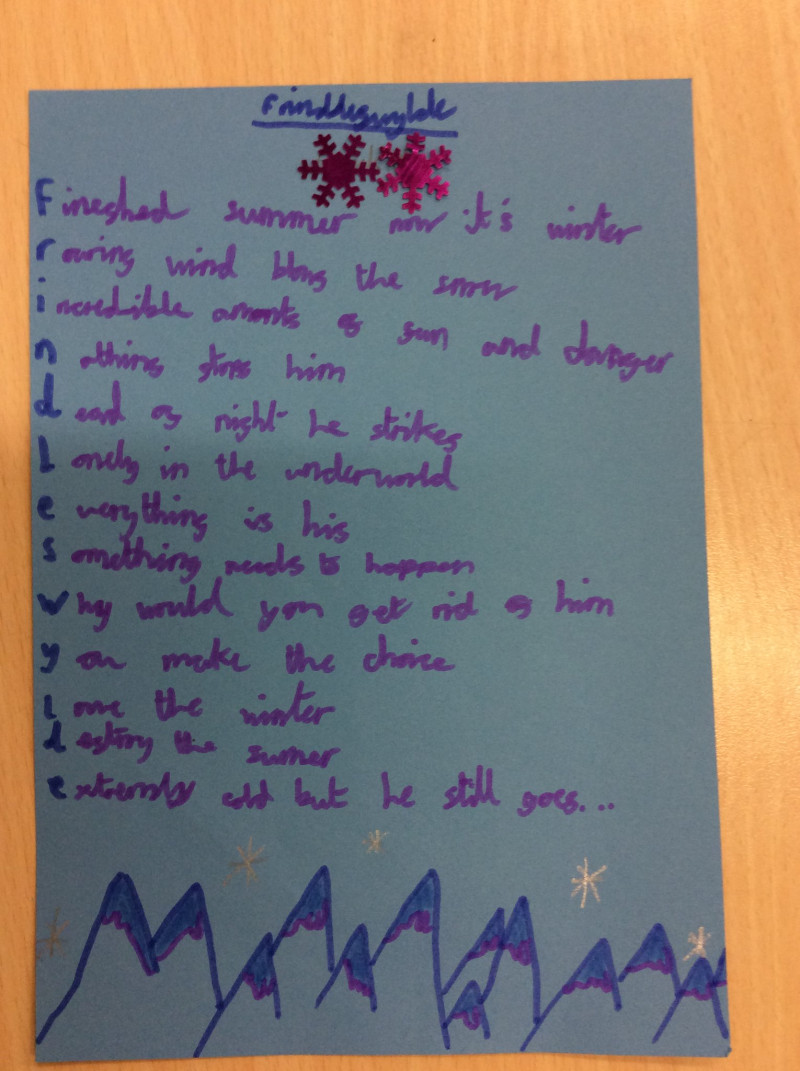 Frindleswylde
Fineshed summer now it's winter
roaring wind blows the snow
incredible amonts of fun and danger
nothing stops him
dead of night he strikes
lonely in the underworld
everything is his
something needs to happen
Why would you get rid of him
you make the choice
love the winter
destroy the sumer
extremely cold but he still goes...